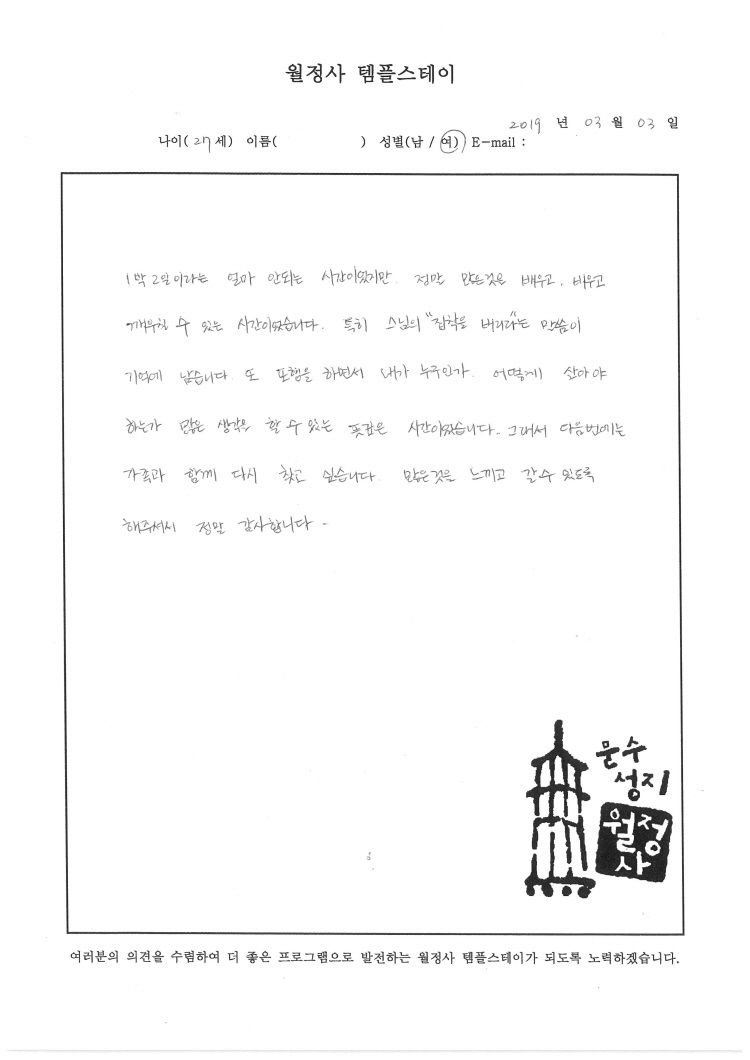 월정사 템플스테이
2019 년 03 월 03 일
나이( 27 세) 이름( ) 성별(남 / 여) E-mail :
1박 2일이라는 얼마 안되는 시간이었지만. 정말 많은것은 배우고, 비우고
깨우칠 수 있는 시간이었습니다. 특히 스님의 "집착을 버리라"는 말씀이
기억에 남습니다. 또 포행을 하면서 내가 누구인가. 어떻게 살아야
하는가 많은 생각을 할 수 있는 뜻깊은 시간이었습니다. 그래서 다음번에는
가족과 함께 다시 찾고 싶습니다. 많은것을 느끼고 갈 수 있도록
해주셔서 정말 감사합니다 -
문수
성지
월정
사
여러분의 의견을 수렴하여 더 좋은 프로그램으로 발전하는 월정사 템플스테이가 되도록 노력하겠습니다.